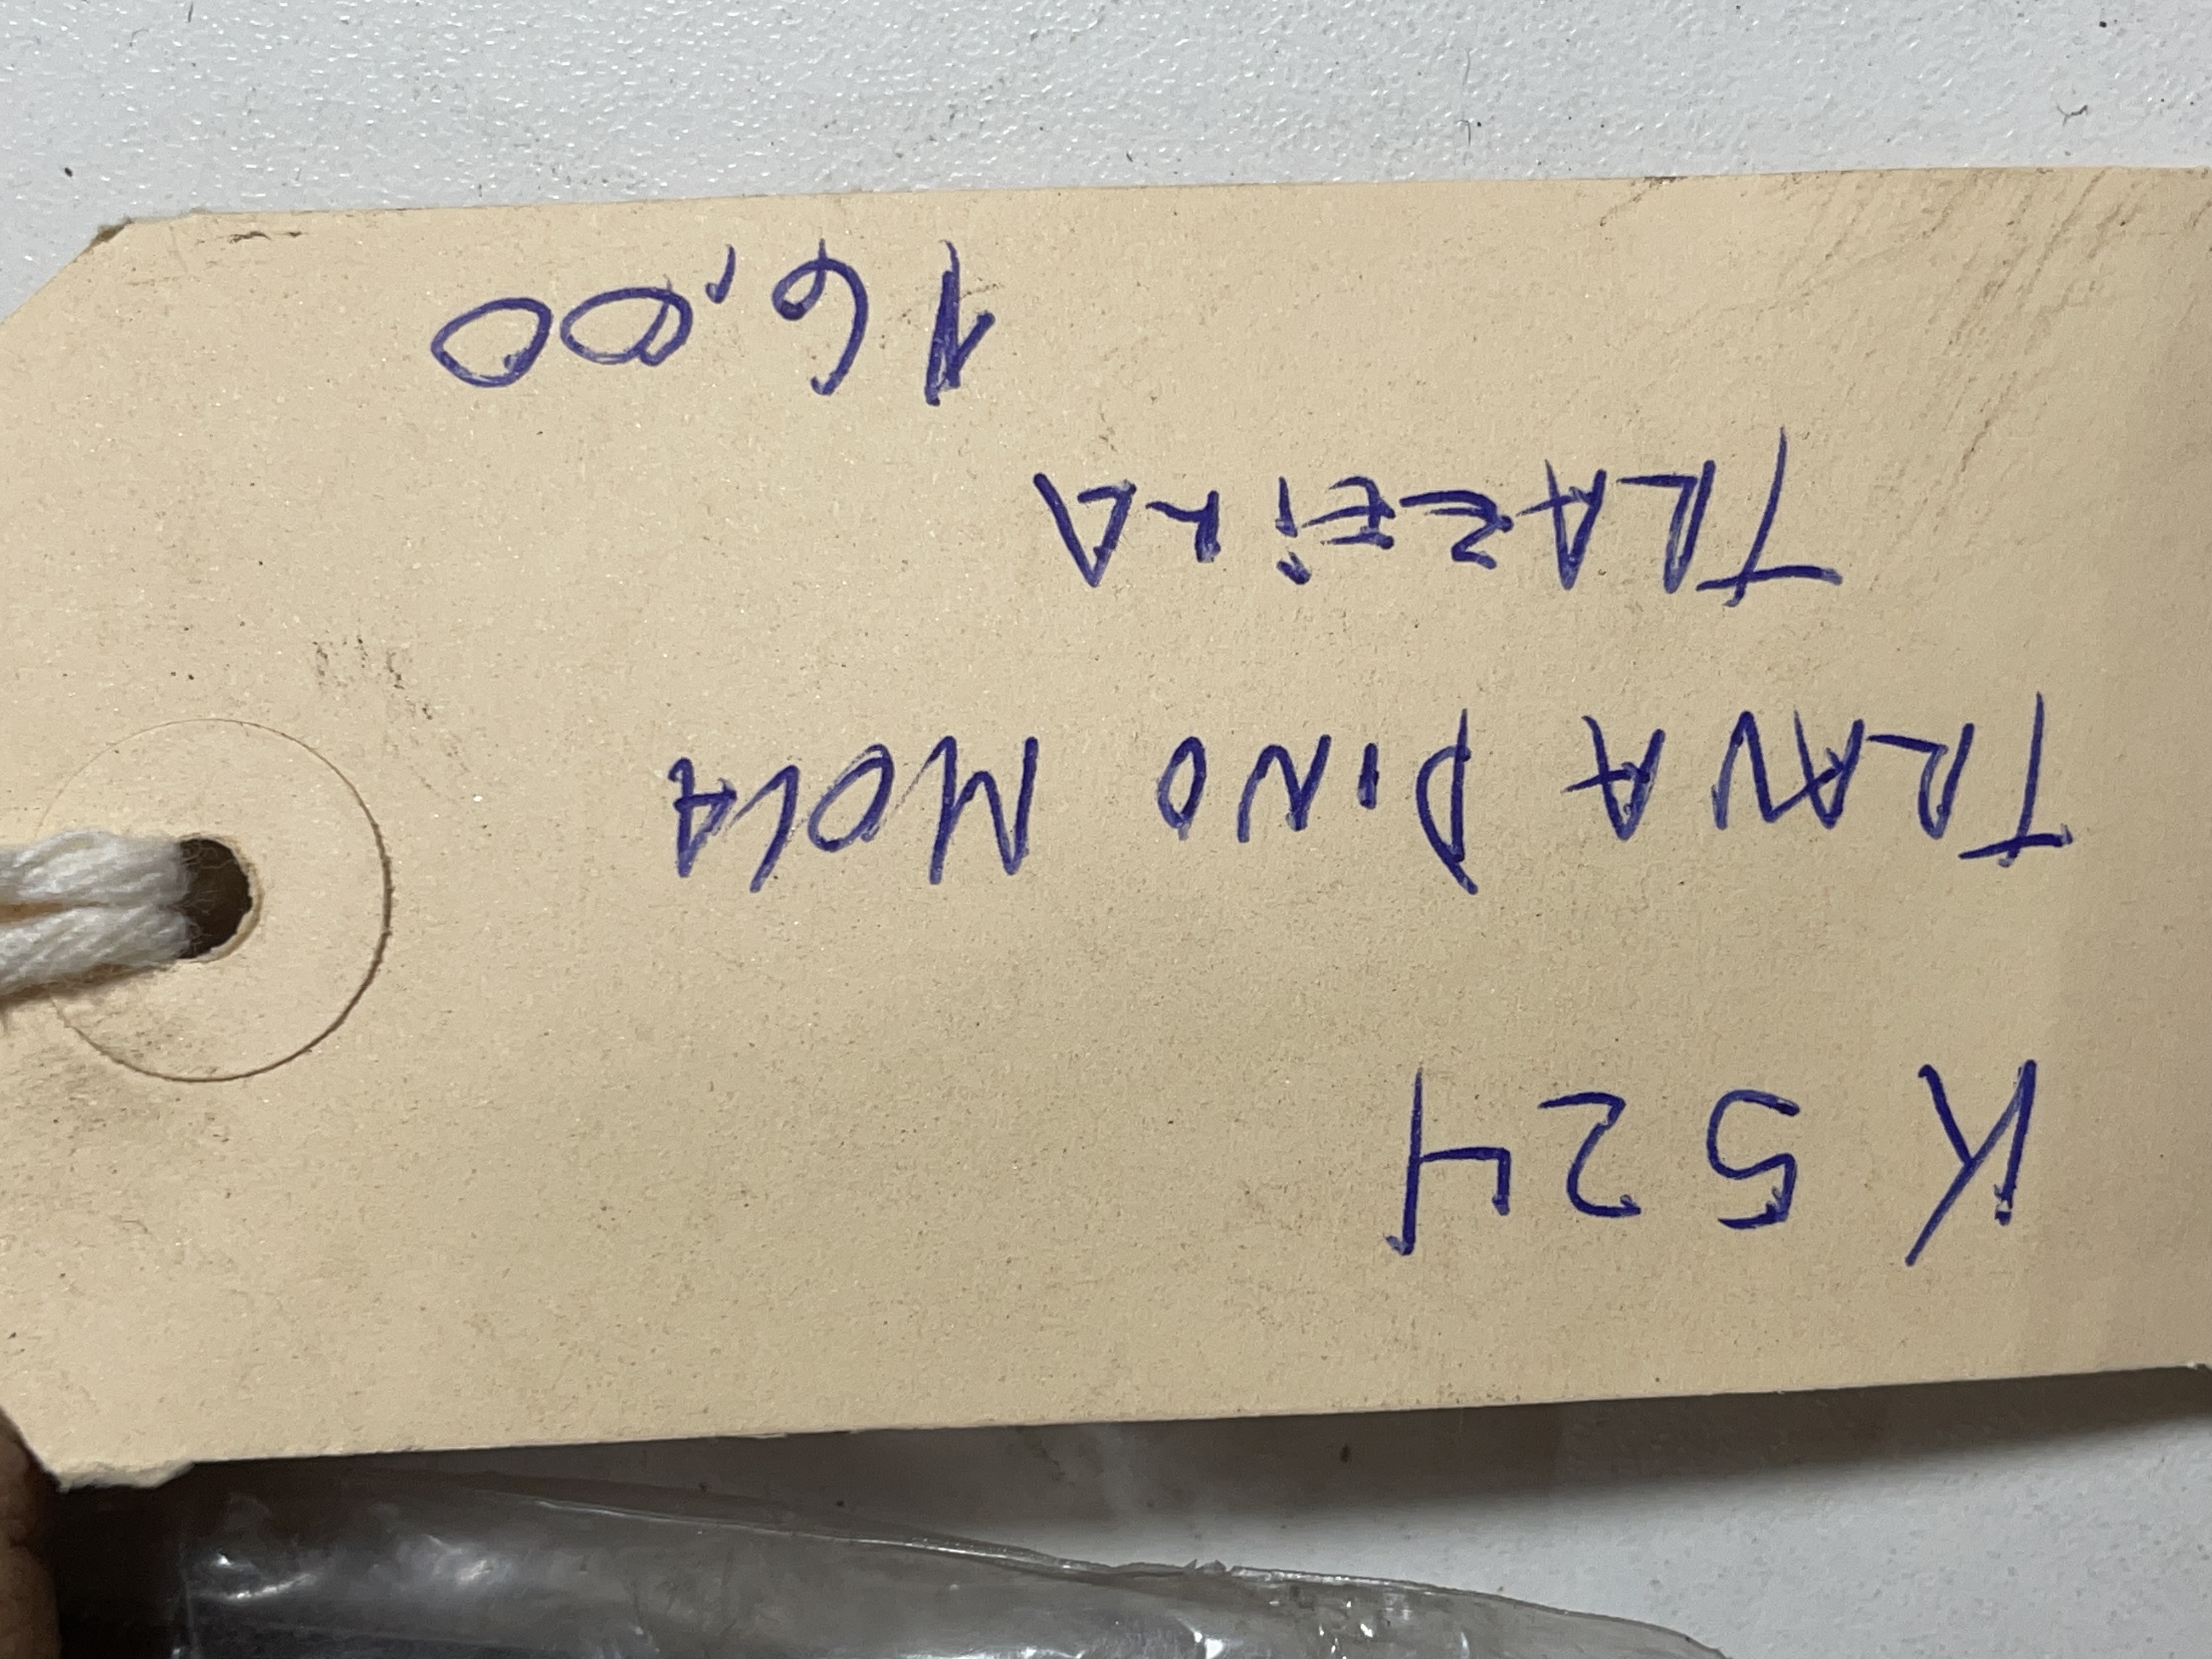 K 524
TRAVA PINO MOLA
TRAZEIRA
16,00